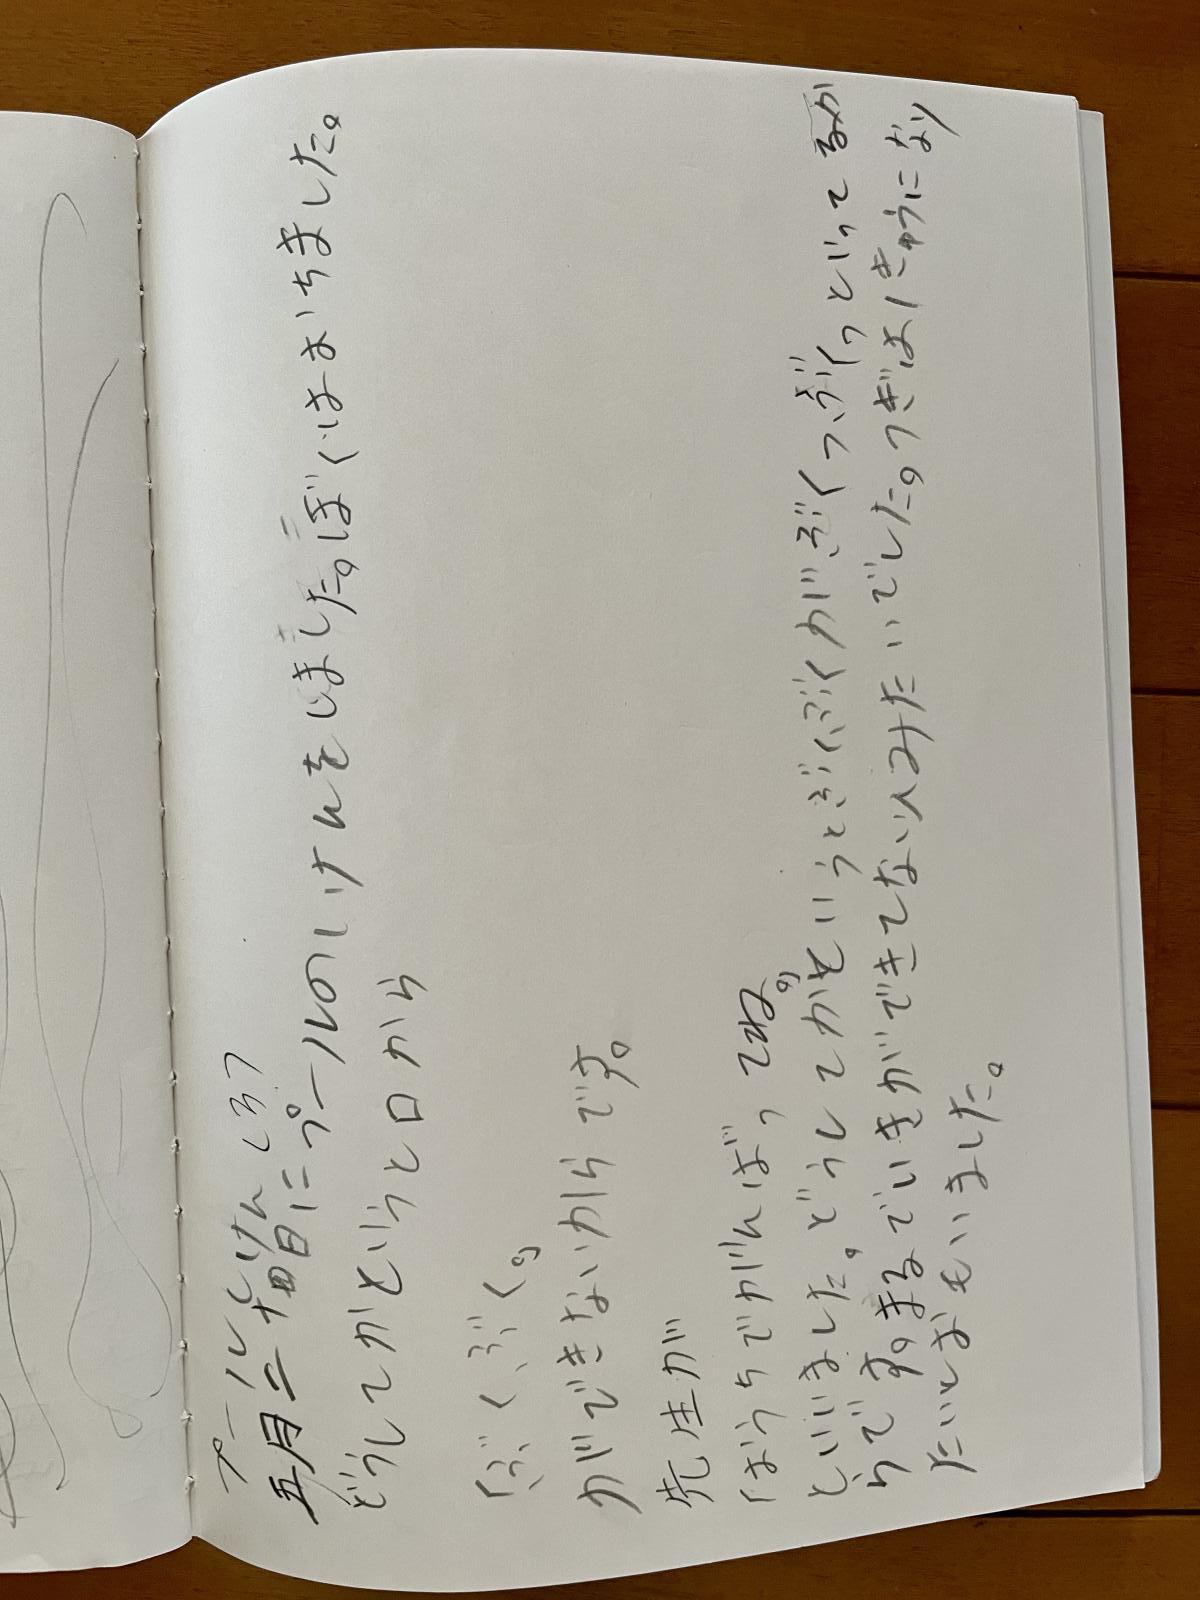 プールしけん(ろ)
五月二十四日にプールのしけんをしました。ぼくはおちました。
どうしてかというと口から
「ぶくぶく。」
ができないからです。
先生が
「おうちでがんばってね。」
といいました。どうしてかをいうとぶくぶくがぶくっぶくっといってるか
らです。まるでいきができてない人みたいでした。つぎは1きゅうになり
たいとおもいました。